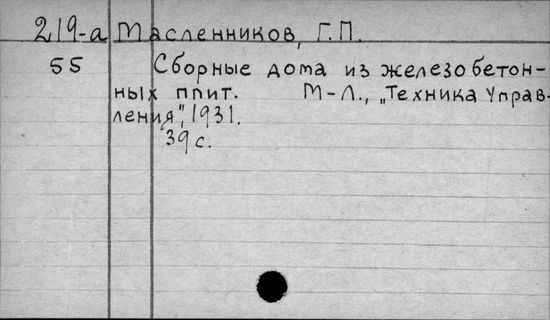 219-а Масленников, Г.П.
55 Сборные дома из железобетон-
ных плит. М-Л., „Техника Управ-
ления", 1931.
39 с.